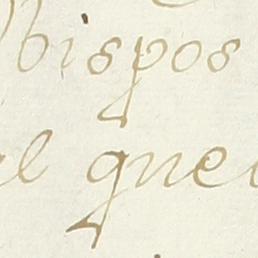 bispos
el que